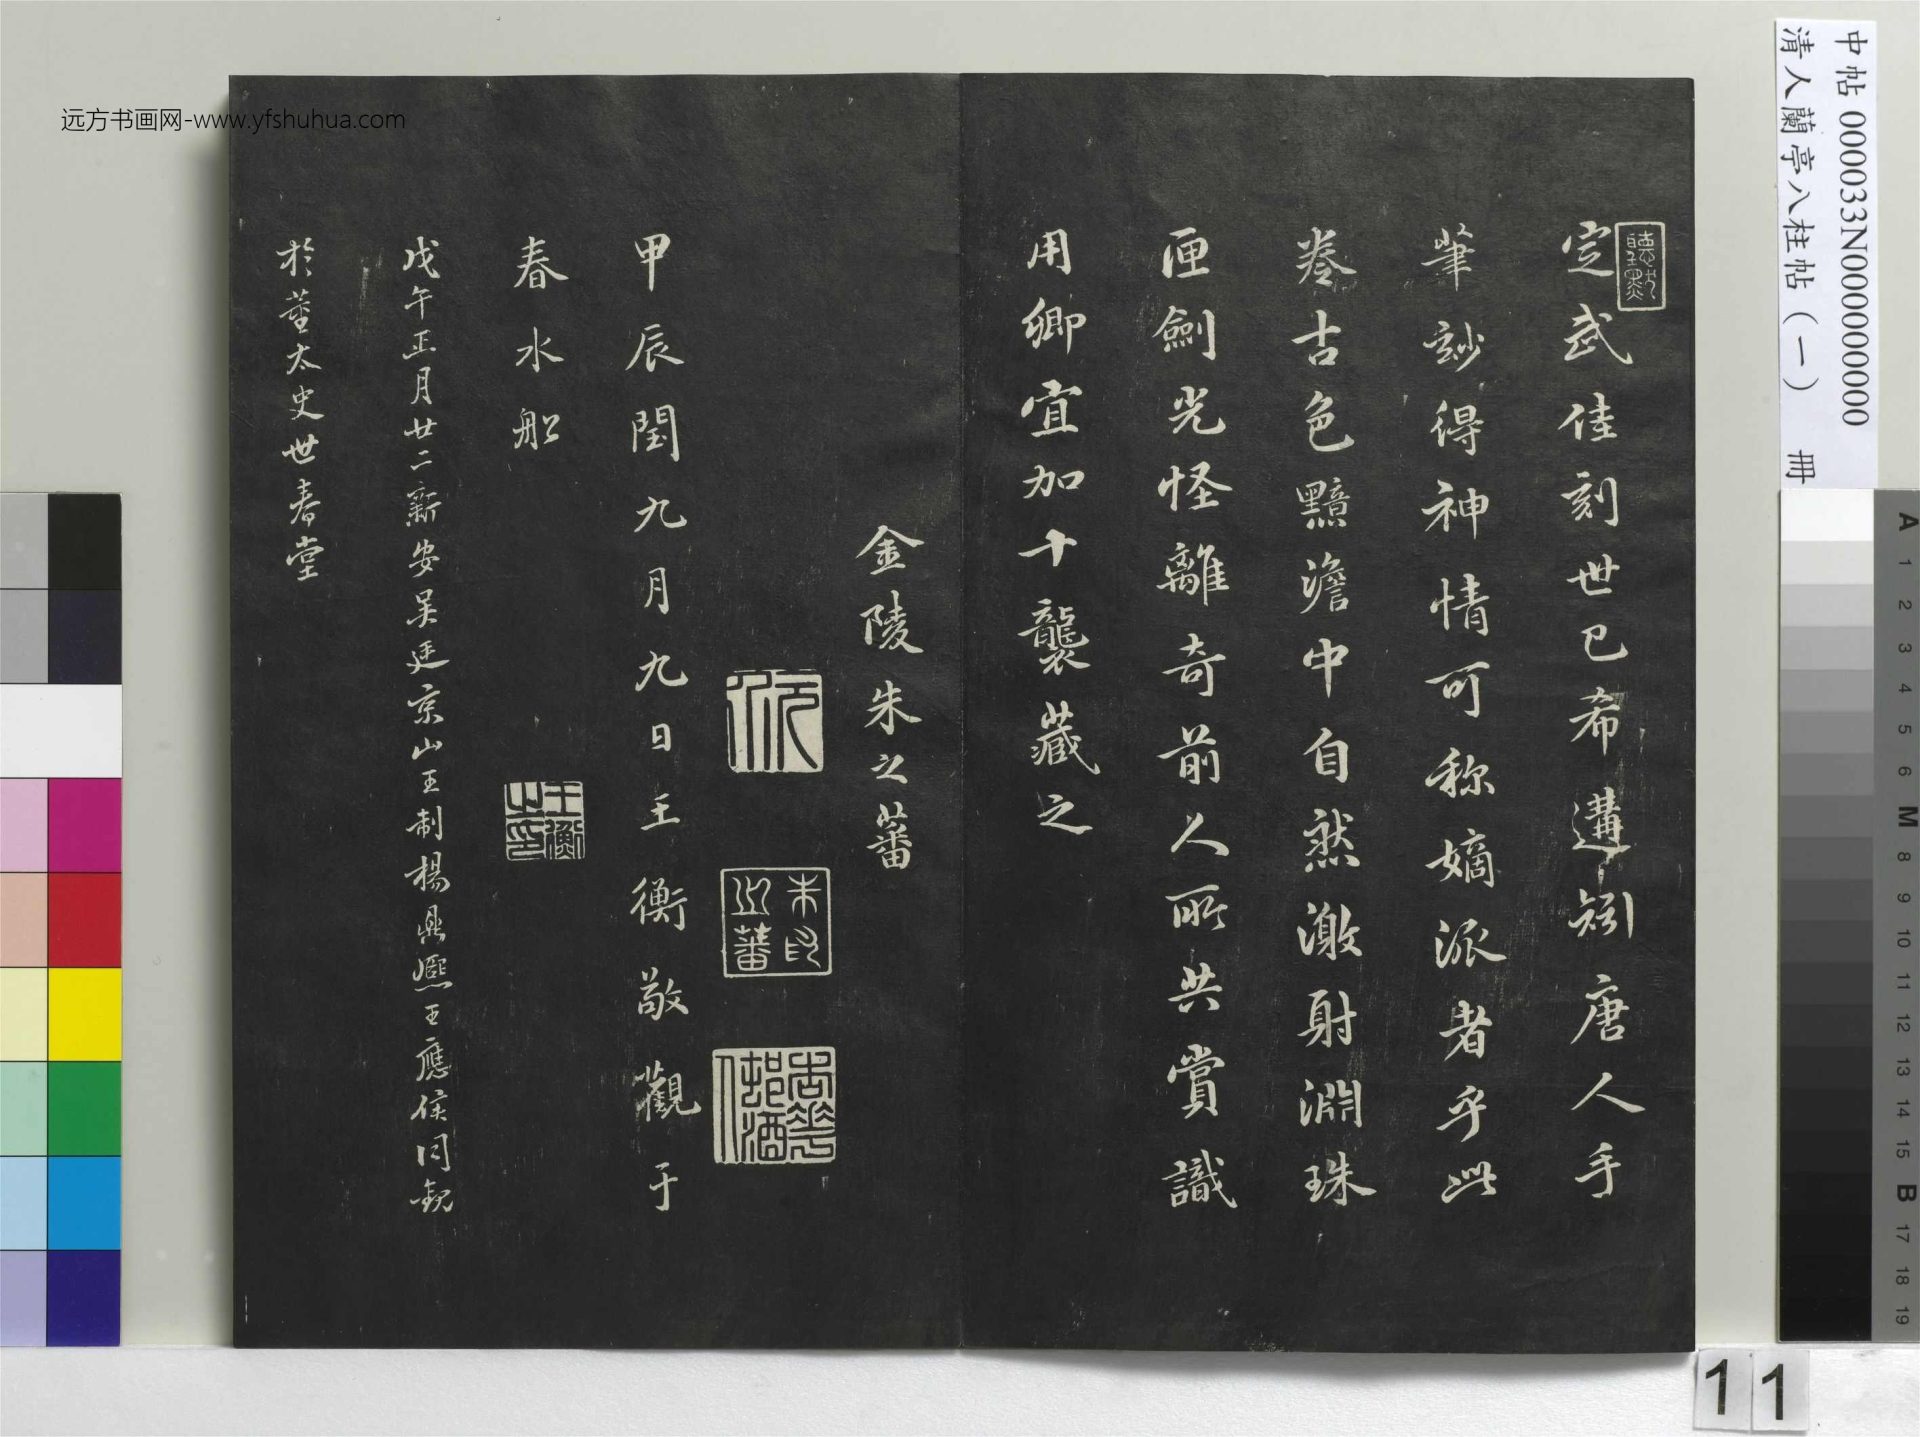 定武佳刻世已希遘矧唐人手
筆訬得神情可称嫡派者乎此
卷古色黯澹中自然激射淵珠
匣劍光怪離奇前人所共賞識
用卿宜加十襲藏之
金陵朱之蕃
朱之蕃印
甲辰閏九月九日王衡敬觀于
春水船
王衡之印
戊午正月廿二新安吴廷京山王制楊鼎熙王應侯同觀
於董太史世春堂
中帖 000033N000000000
清人蘭亭八柱帖(一) 冊
远方书画网-www.yfshuhua.com
A 1 2 3 4 5 6 M 8 9 10 11 12 13 14 15 B 17 18 19
11